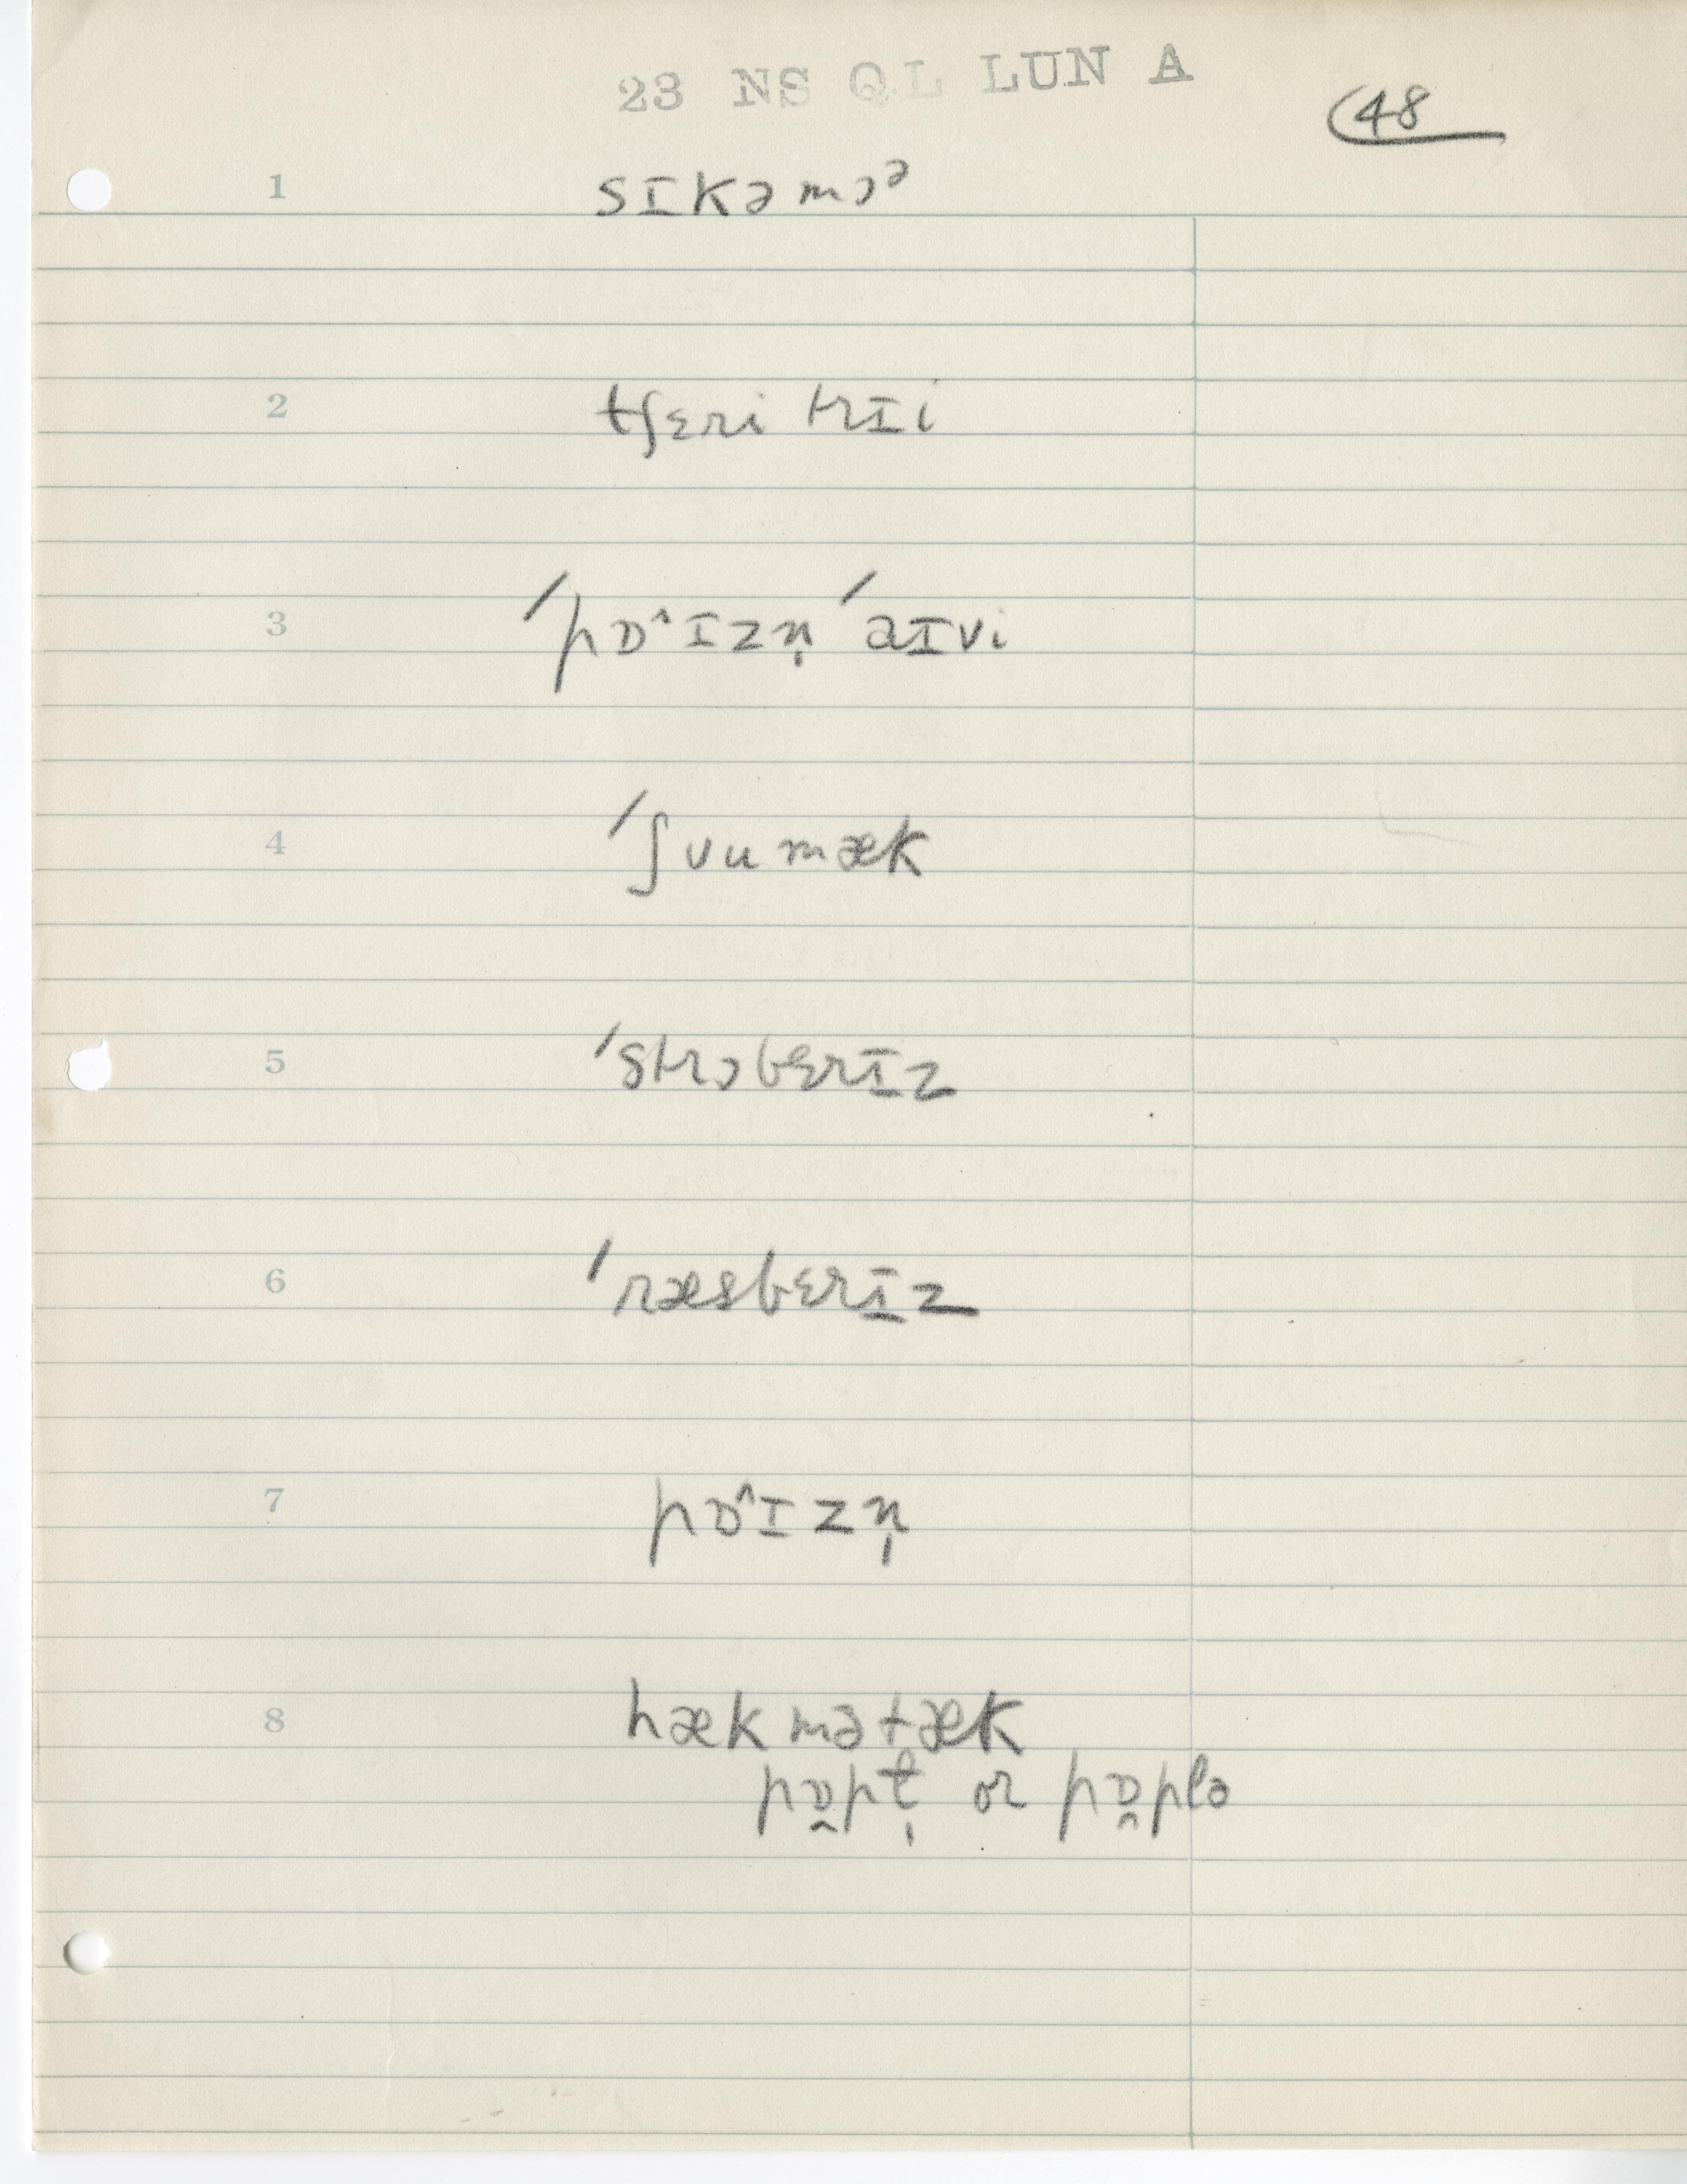 23 NS QL LUN A
48
1 sɪkəmɔᵊ
2 tʃɛri trɪi
3 ˊpɒˆɪzn̩ ˊaɪvi
4 ˊʃᴜumæk
5 ˊstrɔbɛrɪz
6 ˊræsbɛrɪz
7 pɒˆɪzn̩
8 hækmətæk
pɒ̭pɫ̩ or pɒ̭plə